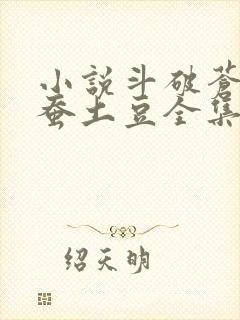 小说斗破苍
蚕土豆全集
绍天明